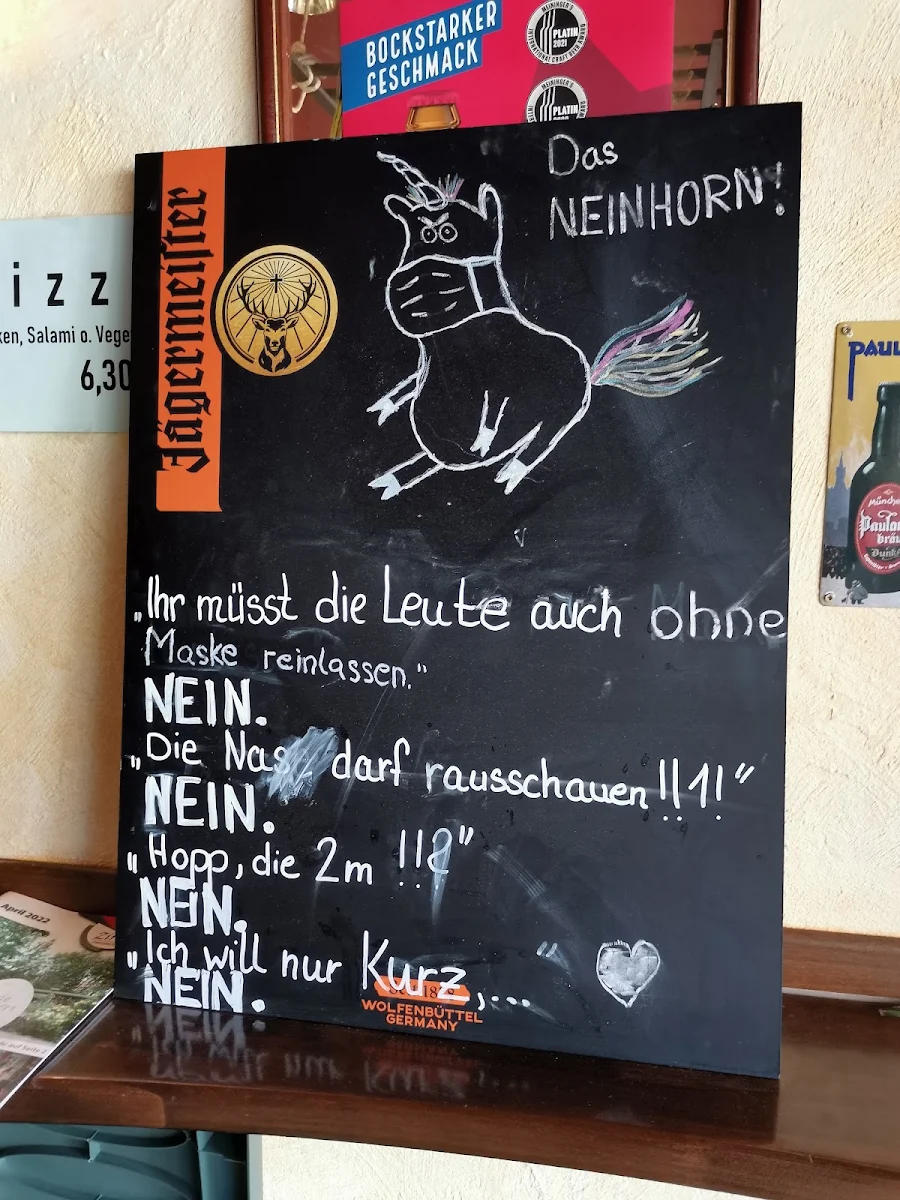 BOCKSTARKER
GESCHMACK
MEININGER'S
INTERNATIONAL CRAFT BEER AWARD
PLATIN
2021
MEININGER'S
PLATIN
Das
NEINHORN!
Jägermeister
izz
ken, Salami o. Vege
6,30
PAUL
Münche
Paulan
bräu
Dunk
„Ihr müsst die Leute auch ohne
Maske reinlassen."
NEIN.
„Die Nas darf rausschauen!!1!"
NEIN.
„Hopp, die 2m !!?"
NEIN.
„Ich will nur Kurz,..."
NEIN.
WOLFENBÜTTEL
GERMANY
April 2022